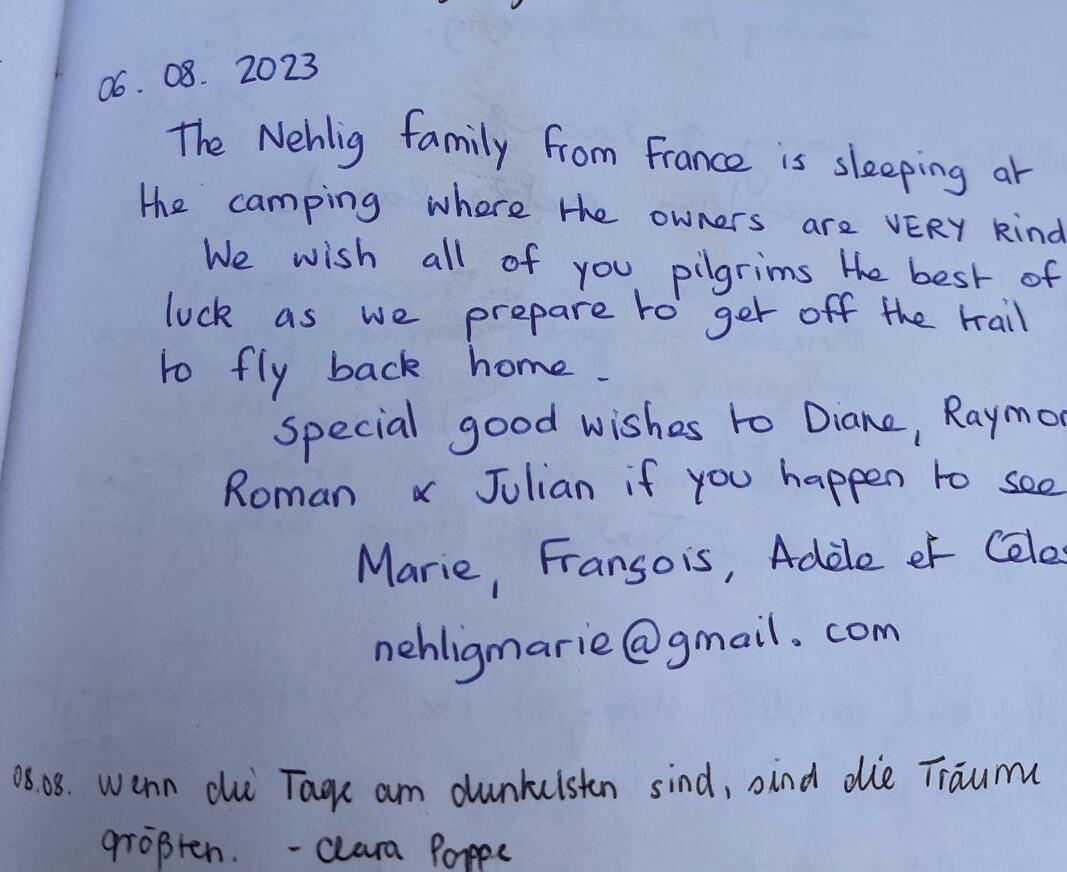 06. 08. 2023
The Nehlig family from France is sleeping at
the camping where the owners are VERY kind
We wish all of you pilgrims the best of
luck as we prepare to get off the trail
to fly back home.
Special good wishes to Diane, Raymo
Roman & Julian if you happen to see
Marie, François, Adèle et Céles
nehligmarie@gmail.com
08.08. Wenn die Tage am dunkelsten sind, sind die Träume
größten. - Clara Poppe